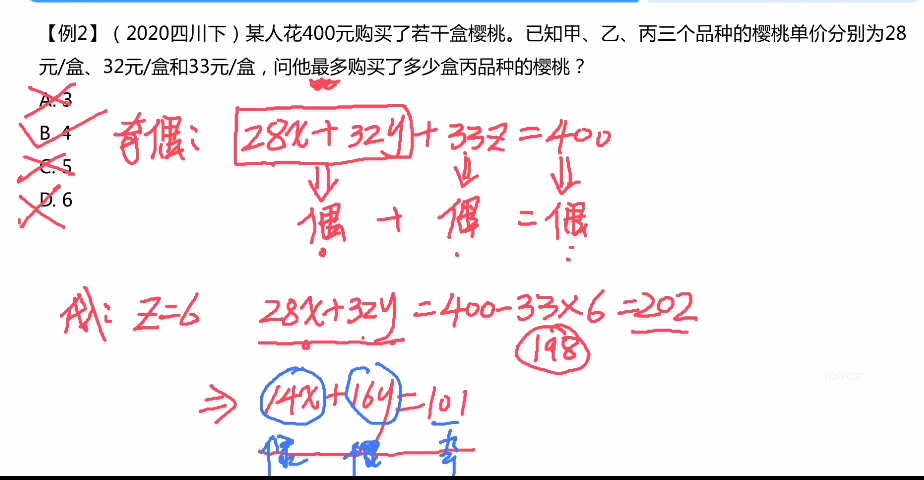 【例2】（2020四川下）某人花400元购买了若干盒樱桃。已知甲、乙、丙三个品种的樱桃单价分别为28
元/盒、32元/盒和33元/盒，问他最多购买了多少盒丙品种的樱桃？
A. 3
B. 4
C. 5
D. 6
奇偶： 28x+32y+33z=400
偶 + 偶 = 偶
代： z=6 28x+32y=400-33×6=202
198
⇒ 14x+16y=101
偶 偶 奇